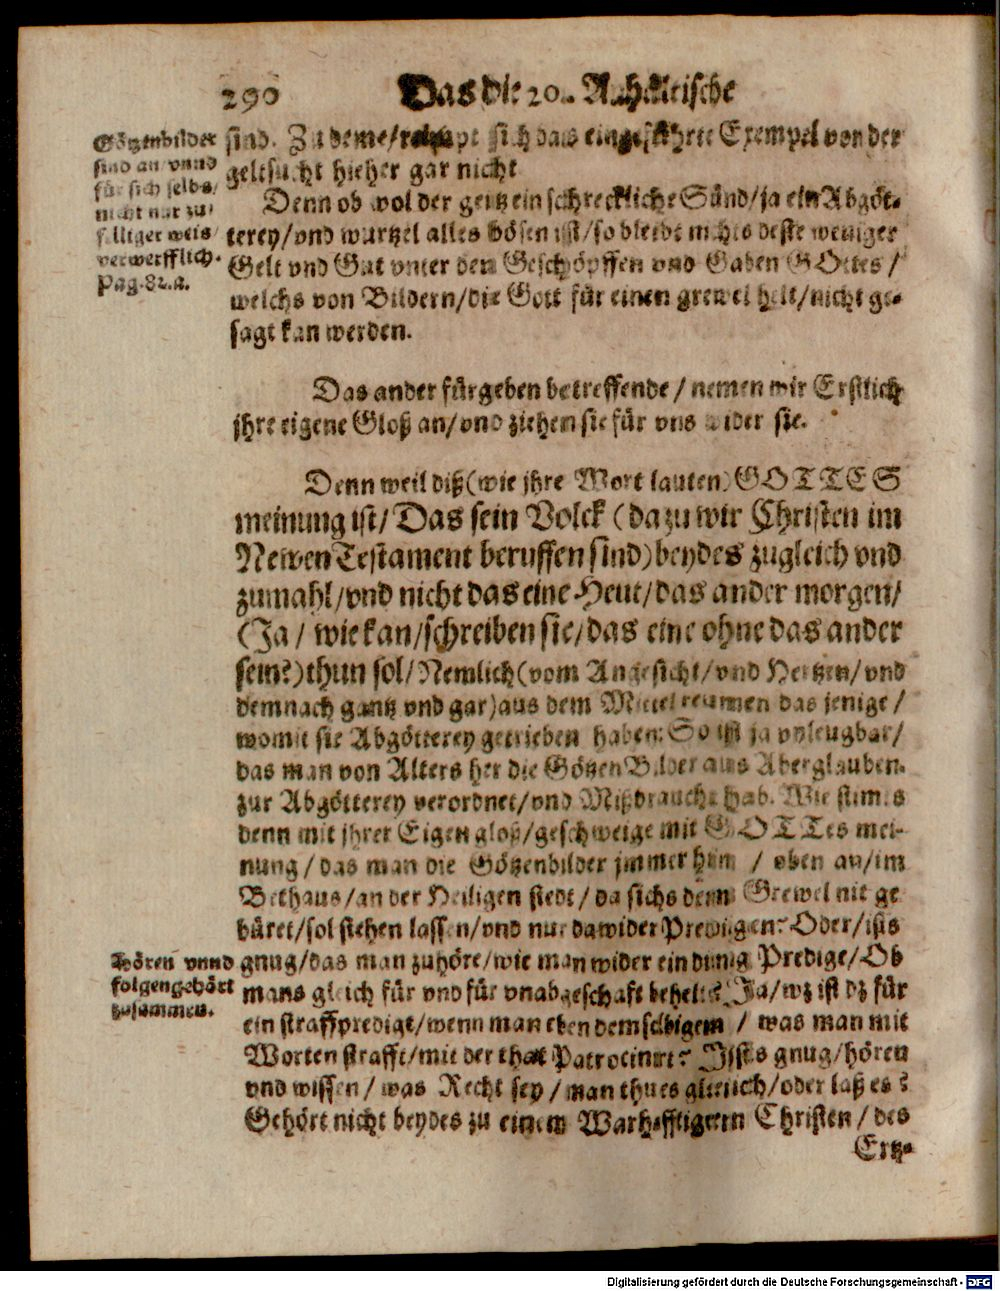 290 Das die 20.. Anhaltische
Götzenbilder
sind an vnnd
für sich selbs/
nicht nur zu-
felliger weis/
verwerfflich.
Pag. 82.a.
sind. Zu deme/ sich das eingeführte Exempel von der
geltsucht hieher gar nicht
Denn ob wol der geitz ein schreckliche Sünd/ja ein Abgöt-
terey/vnd wurtzel alles bösen ist/so bleibt nichts deste weniger
Gelt vnd Gut vnter den Geschöpffen vnd Gaben GOttes/
welchs von Bildern/die Gott für einen grewel helt/nicht ge-
sagt kan werden.
Das ander fürgeben betreffende / nemen wir Erstlich
jhre eigene Gloß an/vnd ziehen sie für vns wider sie.
Denn weil diß(wie jhre Wort lauten)GOTTES
meinung ist/Das sein Volck (dazu wir Christen im
Newen Testament beruffen sind)beydes zugleich vnd
zumahl/vnd nicht das eine Heut/das ander morgen/
(Ja / wie kan/schreiben sie/das eine ohne das ander
sein?)thun sol/Nemlich(vom Angesicht/vnd Hertzen/vnd
demnach gantz vnd gar)aus dem Mittel reumen das jenige/
womit sie Abgötterey getrieben haben: So ist ja vnleugbar/
das man von Alters her die Götzen Bilder aus Aberglauben
zur Abgötterey verordnet/vnd Mißbraucht hab. Wie stimts
denn mit jhrer Eigen gloß/geschweige mit GOTTes mei-
nung/das man die Götzenbilder jmmer hin / oben an/im
Bethaus/an der Heiligen stedt/da sichs dem Grewel nit ge
büret/sol stehen lassen/vnd nur dawider Predigen? Oder/ists
Hören vnnd
folgen gehört
zusammen.
gnug/das man zuhöre/wie man wider ein ding Predige/Ob
mans gleich für vnd für vnabgeschaft behelt? Ja/wz ist dz für
ein straffpredigt/wenn man eben demselbigem / was man mit
Worten strafft/mit der that Patrocinirt? Ists gnug/hören
vnd wissen/was Recht sey/man thues gleich/oder laß es?
Gehört nicht beydes zu einem Warhafftigern Christen/des
Ertz-
Digitalisierung gefördert durch die Deutsche Forschungsgemeinschaft - DFG